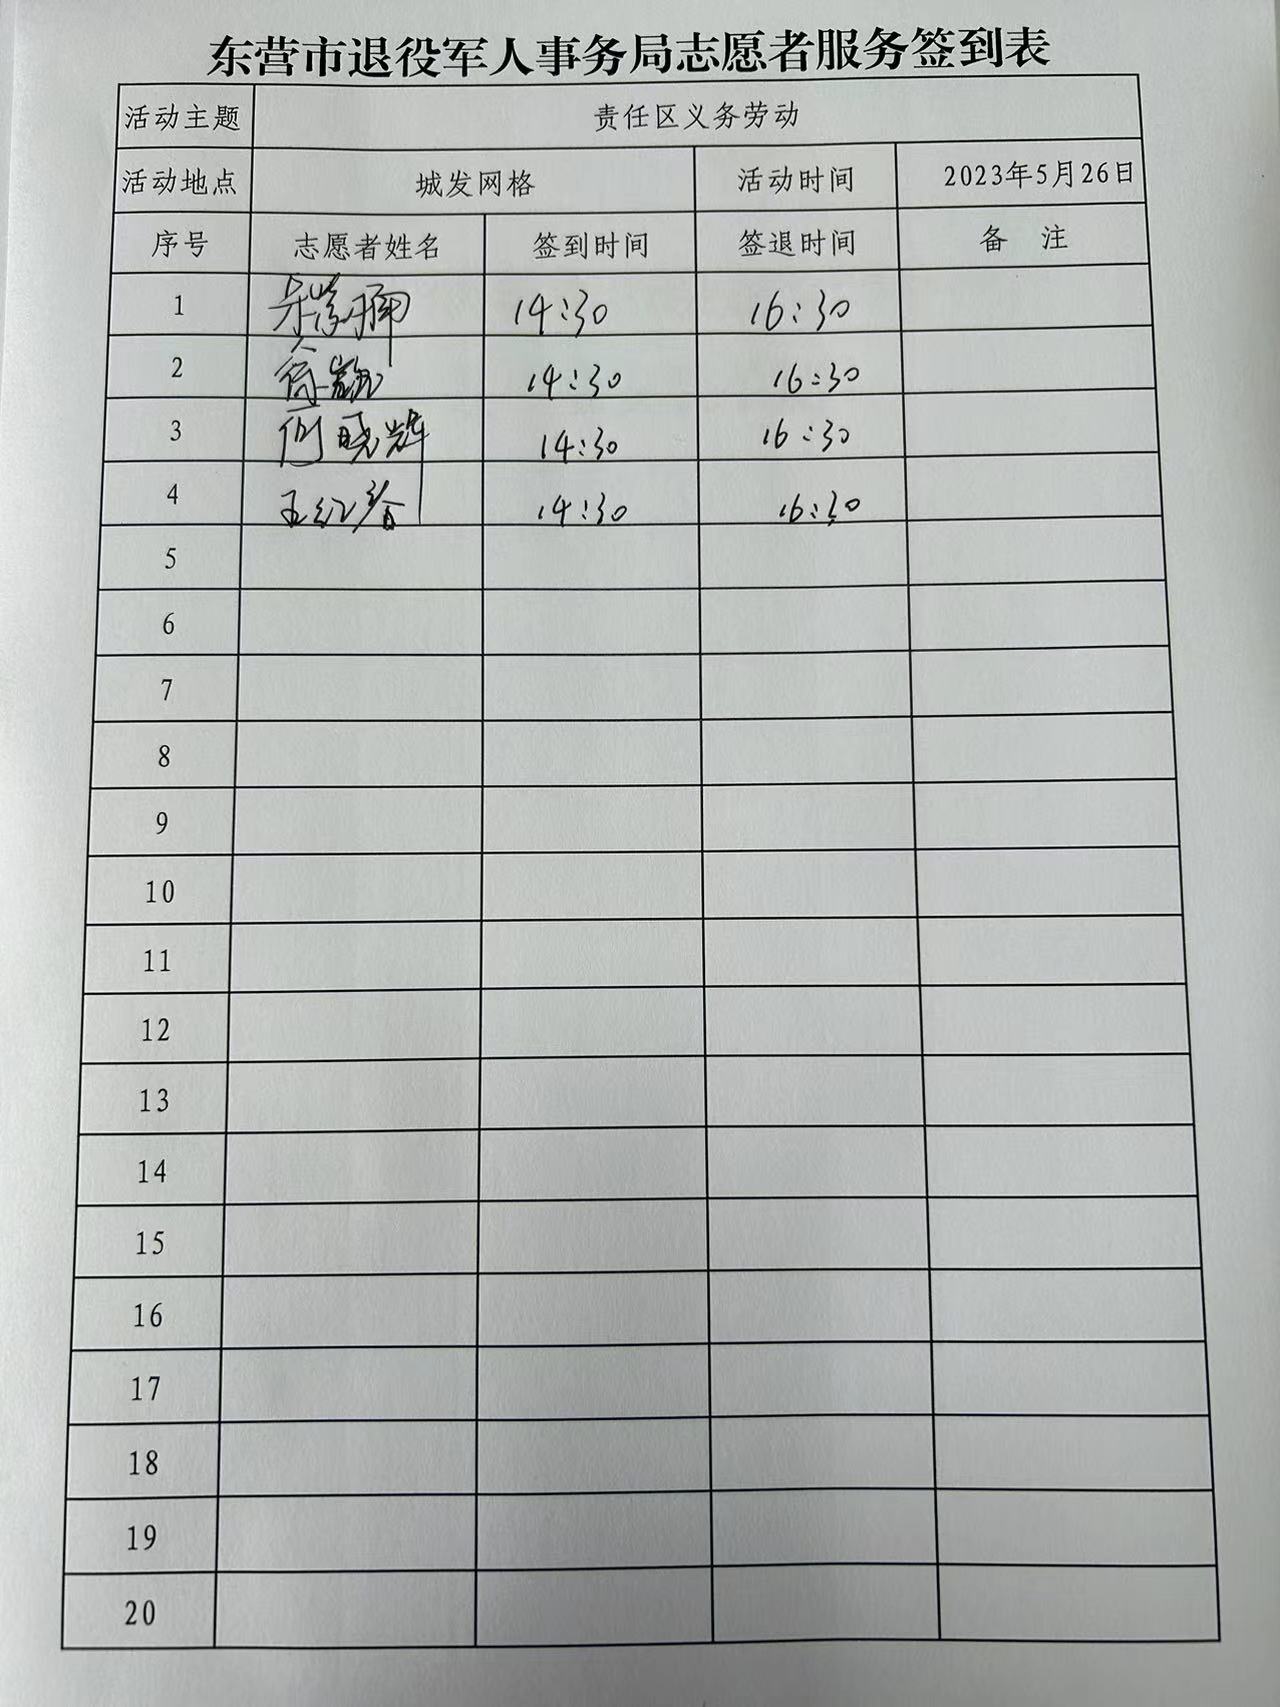 东营市退役军人事务局志愿者服务签到表
活动主题 责任区义务劳动
活动地点 城发网格 活动时间 2023年5月26日
序号 志愿者姓名 签到时间 签退时间 备 注
1 14:30 16:30
2 14:30 16:30
3 何晓辉 14:30 16:30
4 王红春 14:30 16:30
5
6
7
8
9
10
11
12
13
14
15
16
17
18
19
20